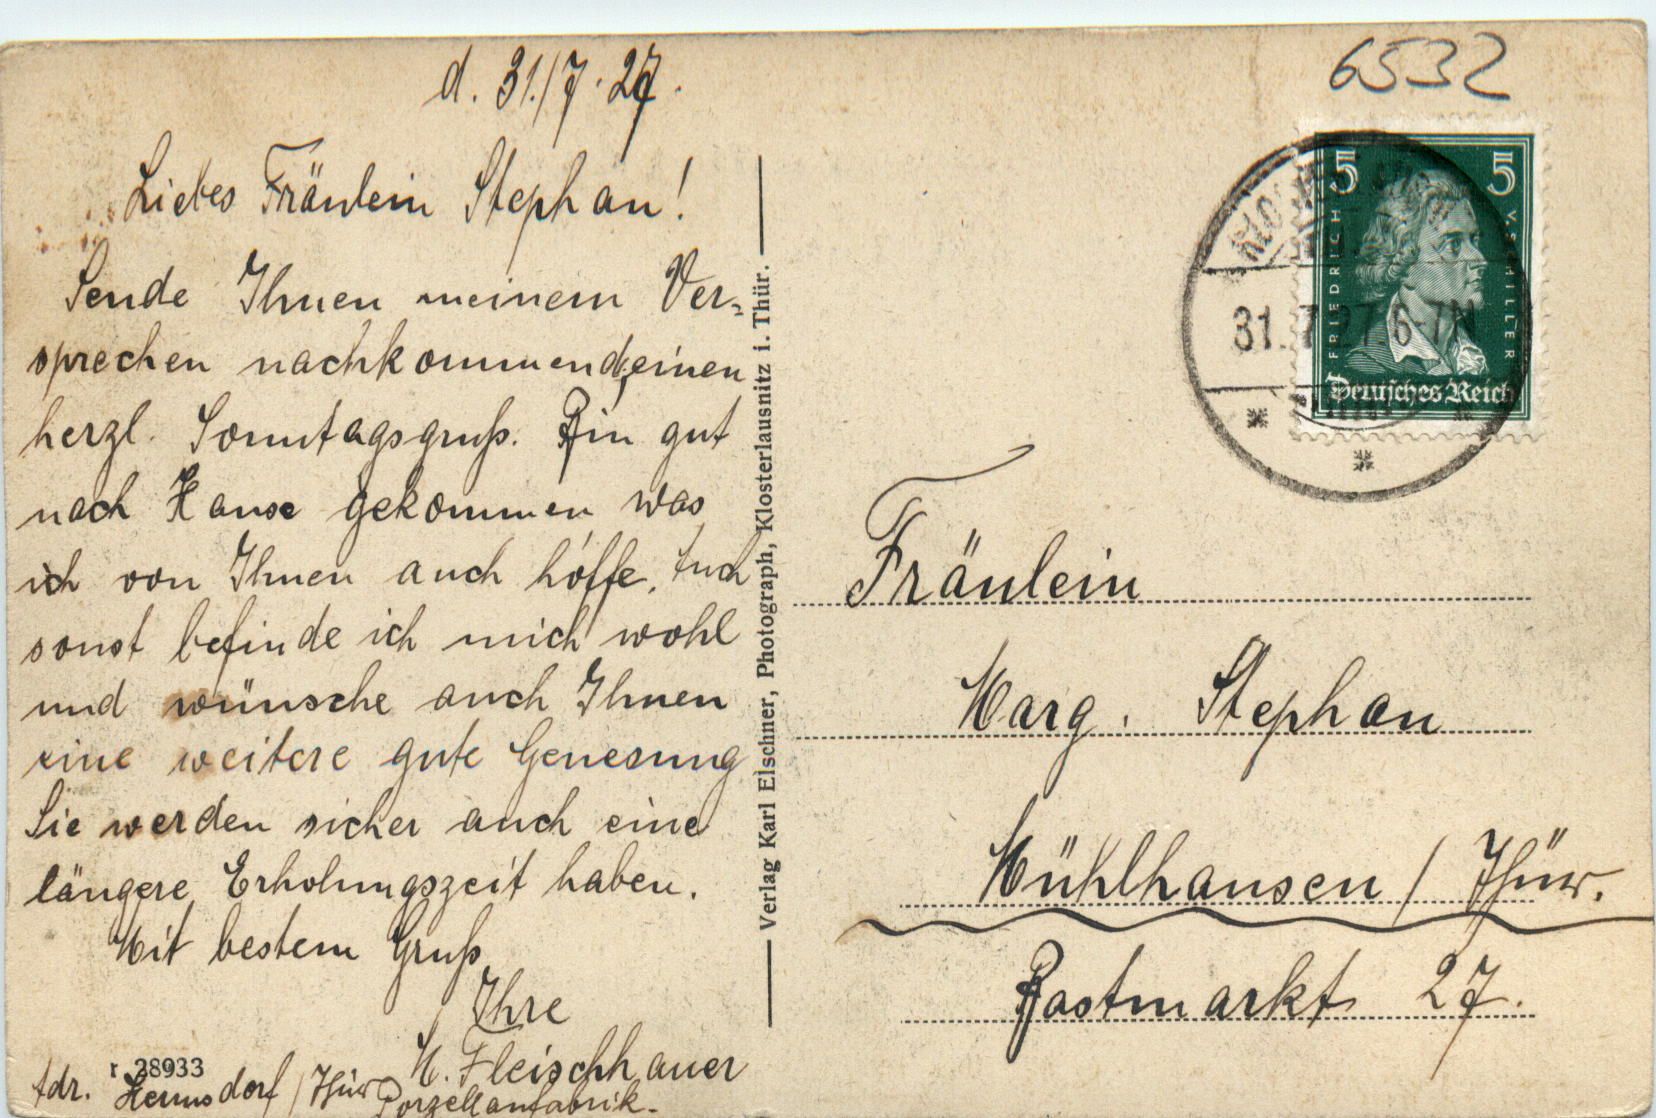 d. 31./7. 27.
Liebes Fräulein Stephan!
Sende Ihnen meinem Ver-
sprechen nachkommend, einen
herzl. Sonntagsgruß. Bin gut
nach Hause gekommen was
ich von Ihnen auch hoffe. Auch
sonst befinde ich mich wohl
und wünsche auch Ihnen
eine weitere gute Genesung
Sie werden sicher auch eine
längere Erholungszeit haben.
Mit bestem Gruß
Ihre
M. Fleischhauer
Adr. Hermsdorf / Thür
Porzellanfabrik.
r 28933
Verlag Karl Elschner, Photograph, Klosterlausnitz i. Thür.
6532
5 5
FRIEDRICH V. SCHILLER
Deutsches Reich
31.7.27. 6-7N
Fräulein
Marg. Stephan
Mühlhausen / Thür.
Rastmarkt 27.